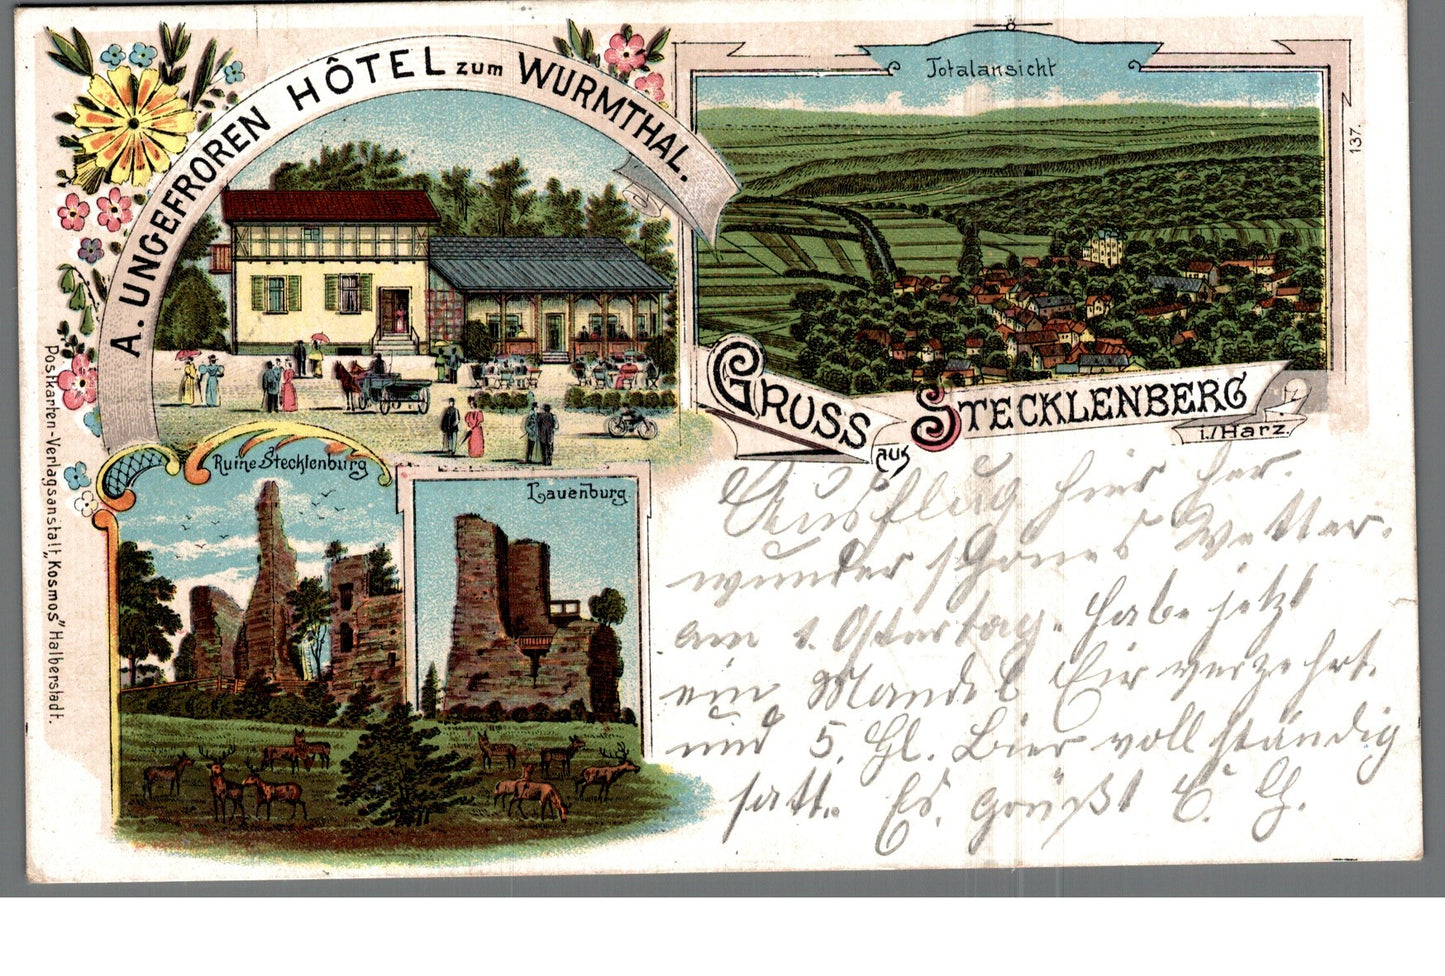 A. UNGEFROREN HÔTEL zum WURMTHAL.
Totalansicht
137.
GRUSS aus STECKLENBERG
i./Harz.
Ruine Stecklenburg
Lauenburg.
Postkarten-Verlagsanstalt "Kosmos" Halberstadt.
Ausflug hier her.
wunder schönes Wetter.
am 1. Ostertag. Habe jetzt
ein Mandel Eier verzehrt.
und 5. Gl. Bier vollständig
satt. Es. grüßt